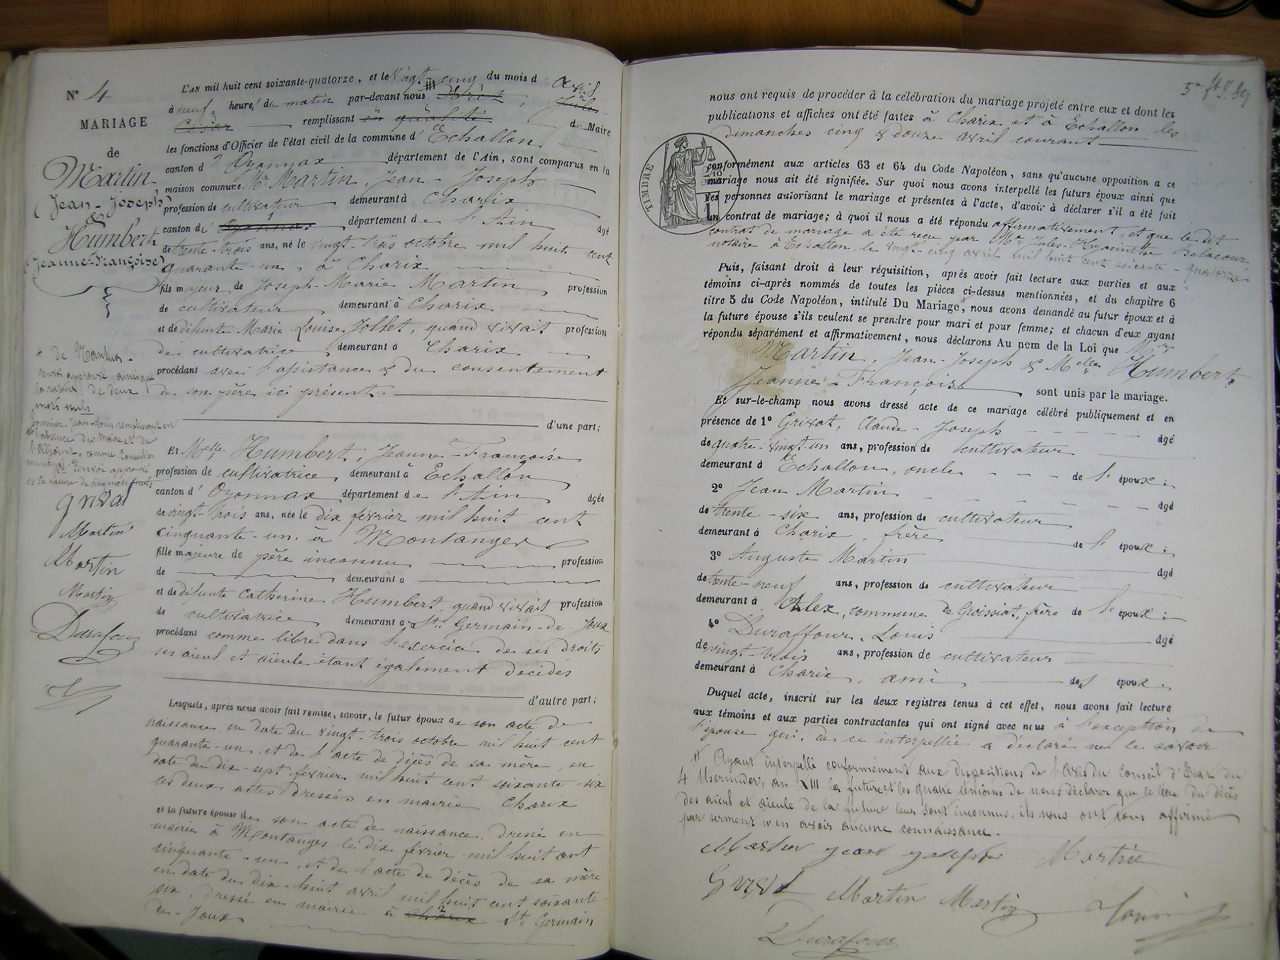 N° 4
MARIAGE
de
Martin
(Jean-Joseph)
&
Humbert
(Jeanne-Françoise)
L'AN mil huit cent soixante-quatorze, et le vingt-cinq du mois d'avril
à neuf heures de matin par-devant nous
remplissant en qualité d Maire
les fonctions d'Officier de l'état civil de la commune d'Echallon
canton d'Oyonnax département de l'Ain, sont comparus en la
maison commune Mr Martin, Jean-Joseph
profession de cultivateur demeurant à Charix
canton d' Oyonnax département de l'Ain âgé
de trente-trois ans, né le vingt-trois octobre mil huit cent
quarante-un, à Charix
fils majeur de Joseph-Marie Martin profession
de cultivateur, demeurant à Charix
et de défunte Marie Louise Jollet, quand vivait profession
de cultivatrice, demeurant à Charix
procédant avec l'assistance & du consentement
de son père ici présent.
d'une part;
Et Melle Humbert, Jeanne-Françoise
profession de cultivatrice, demeurant à Echallon
canton d'Oyonnax département de l'Ain âgée
de vingt-trois ans, née le dix février mil huit cent
cinquante-un à Montanges
fille majeure de père inconnu profession
de demeurant à
et de défunte Catherine Humbert, quand vivait profession
de cultivatrice demeurant à St Germain-de Joux
procédant comme libre dans l'exercice de ses droits
ses aïeul et aïeule étant également décédés
d'autre part;
Lesquels, après nous avoir fait remise, savoir, le futur époux de son acte de
naissance en date du vingt-trois octobre mil huit cent
quarante-un, et de l'acte de décès de sa mère, en
date du dix-sept février mil huit cent soixante-six
les deux actes dressés en mairie Charix
et la future épouse de son acte de naissance dressé en
mairie à Montanges le dix février mil huit cent
cinquante-un, et de l'acte de décès de sa mère
en date du dix-huit avril mil huit cent soixante
six, dressé en mairie à Charix St Germain
de-Joux
Grivat
Martin
Martin
Martin
Duraffour
nous ont requis de procéder à la célébration du mariage projeté entre eux et dont les
publications et affiches ont été faites à Charix et à Echallon les
dimanches cinq & douze avril courant
TIMBRE
conformément aux articles 63 et 64 du Code Napoléon, sans qu'aucune opposition a ce
mariage nous ait été signifiée. Sur quoi nous avons interpellé les futurs époux ainsi que
les personnes autorisant le mariage et présentes à l'acte, d'avoir à déclarer s'il a été fait
un contrat de mariage; à quoi il nous a été répondu affirmativement, et que le dit
contrat de mariage a été reçu par Me Jules-Hyacinthe
notaire à Echallon le vingt-cinq avril mil huit cent soixante-quatorze
Puis, faisant droit à leur réquisition, après avoir fait lecture aux parties et aux
témoins ci-après nommés de toutes les pièces ci-dessus mentionnées, et du chapitre 6
titre 5 du Code Napoléon, intitulé Du Mariage, nous avons demandé au futur époux et à
la future épouse s'ils veulent se prendre pour mari et pour femme; et chacun d'eux ayant
répondu séparément et affirmativement, nous déclarons Au nom de la Loi que Mr
Martin, Jean-Joseph & Melle Humbert,
Jeanne-Françoise sont unis par le mariage.
Et sur-le-champ nous avons dressé acte de ce mariage célébré publiquement et en
présence de 1° Grivat, Claude-Joseph âgé
de quatre-vingt un ans, profession de cultivateur
demeurant à Echallon, oncle de l'épouse;
2° Jean Martin âgé
de trente-six ans, profession de cultivateur
demeurant à Charix, frère de l'époux;
3° Auguste Martin âgé
de trente-neuf ans, profession de cultivateur
demeurant à Alex, commune de Groissiat, frère de l'époux;
4° Duraffour, Louis âgé
de vingt-trois ans, profession de cultivateur
demeurant à Charix, ami de l'époux.
Duquel acte, inscrit sur les deux registres tenus à cet effet, nous avons fait lecture
aux témoins et aux parties contractantes qui ont signé avec nous à l'exception de
l'épouse qui, de ce interpellée a déclaré ne le savoir
Ayant interpellé conformément aux dispositions de l'avis du Conseil d'Etat du
4 thermidor, an XIII les futurs et les quatre témoins de nous déclarer que le lieu du décès
des aïeul et aïeule de la future leur sont inconnus, ils nous ont tous affirmé
par serment n'en avoir aucune connaissance.
Martin jean joseph Martin
Grivat Martin Martin
Duraffour